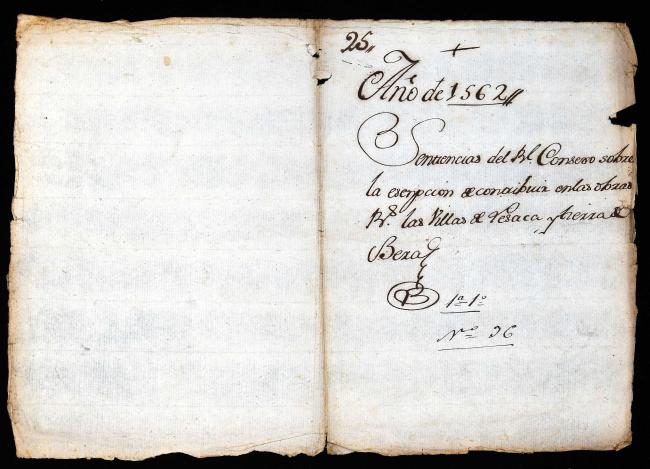 25,,
Año de 1562,,
Sentencias del Rl. Consexo sobre
la esempcion de contribuir en las obras
Rs. las Villas de Lesaca y tierra de
Bera
1a. 1o.
No. 36